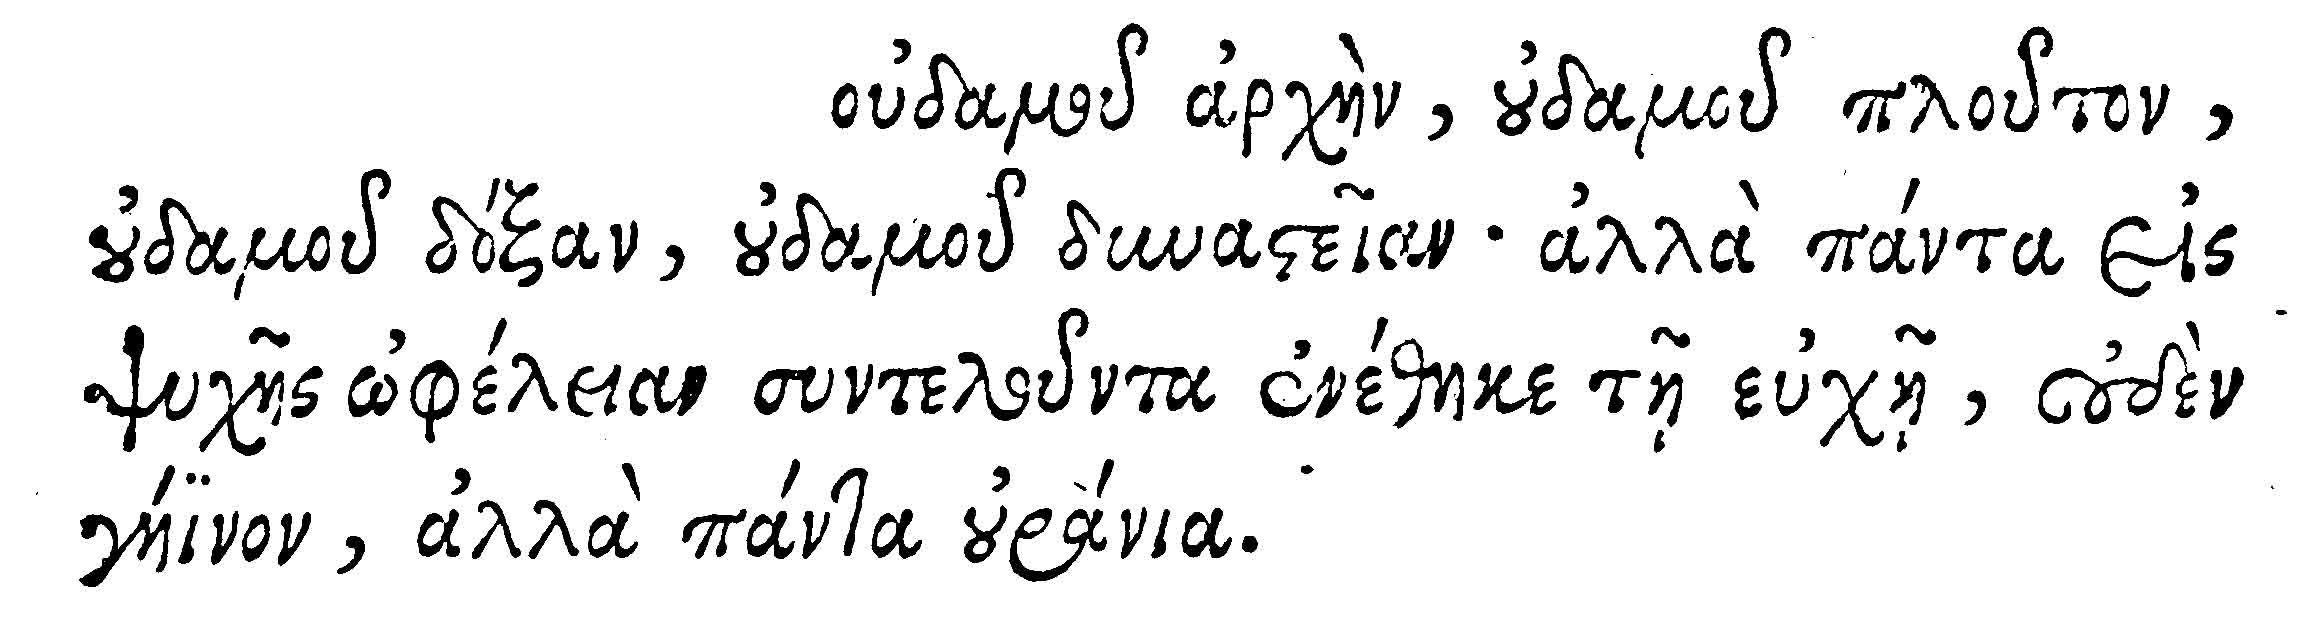 οὐδαμοῦ ἀρχὴν, οὐδαμοῦ πλοῦτον,
οὐδαμοῦ δόξαν, οὐδαμοῦ δυναστεῖαν· ἀλλὰ πάντα εἰς
ψυχῆς ὠφέλειαν συντελοῦντα ἐνέθηκε τῇ εὐχῇ, οὐδὲν
γήϊνον, ἀλλὰ πάντα οὐράνια.